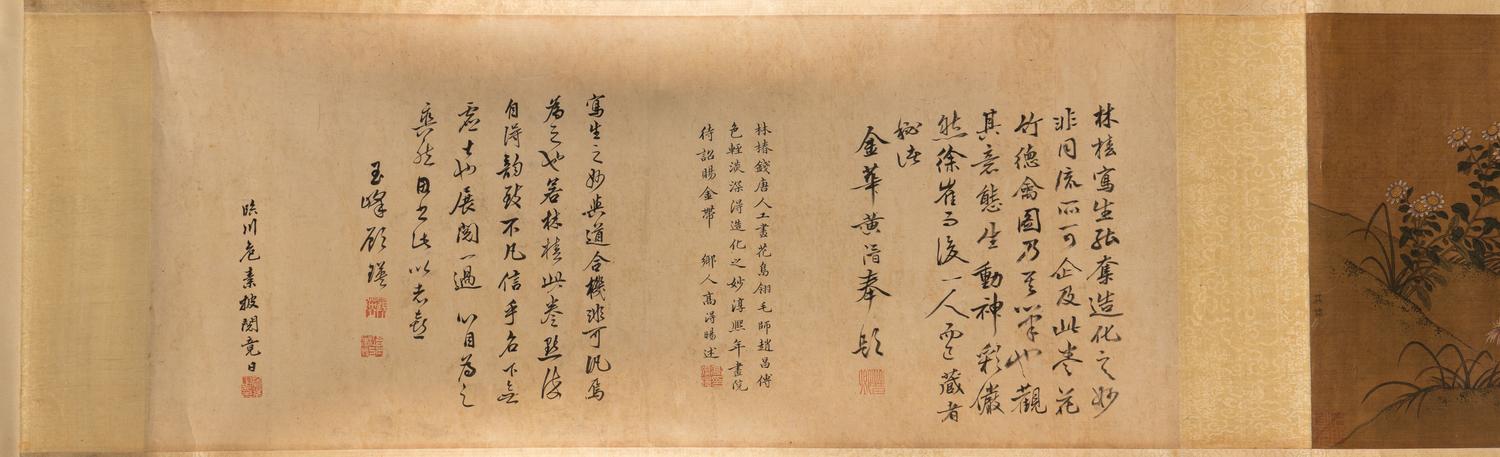 林椿寫生能奪造化之妙
非同流所可企及此卷花
竹德禽圖乃其筆也觀
其意態生動神彩儼
然徐崔而後一人而已藏者
秘諸
金華黃溍奉題
林椿錢唐人工畫花鳥翎毛師趙昌傅
色輕淡深得造化之妙淳熙年畫院
待詔賜金帶 鄉人高得暘述
寫生之妙與道合機非可汎焉
為之也若林椿此卷點染
自得韻致不凡信乎名下無
虛士也展閱一過心目為之
爽然因書此以志喜
玉峰顧瑛
臨川危素披閱竟日